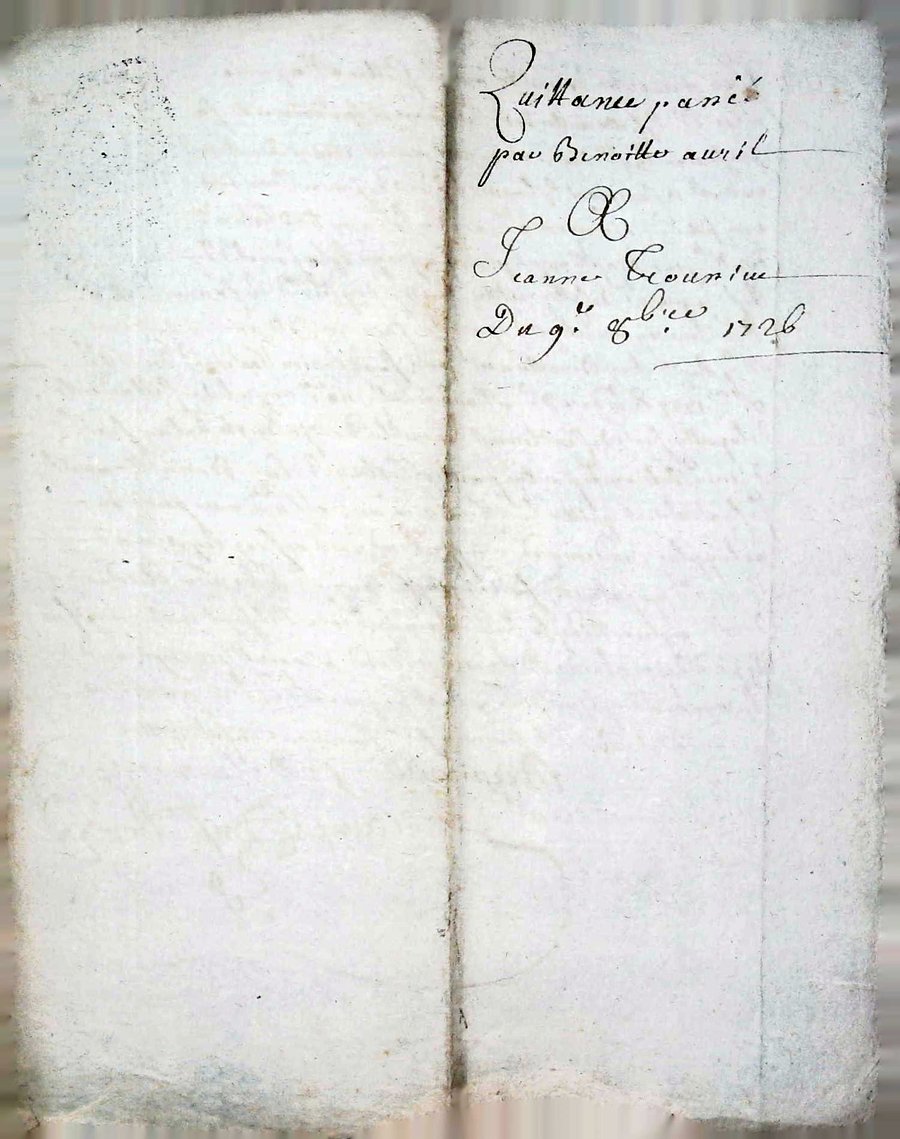 Quittance passée
par Benoitte avril
A
Jeanne
Du 9e 8bre 1726